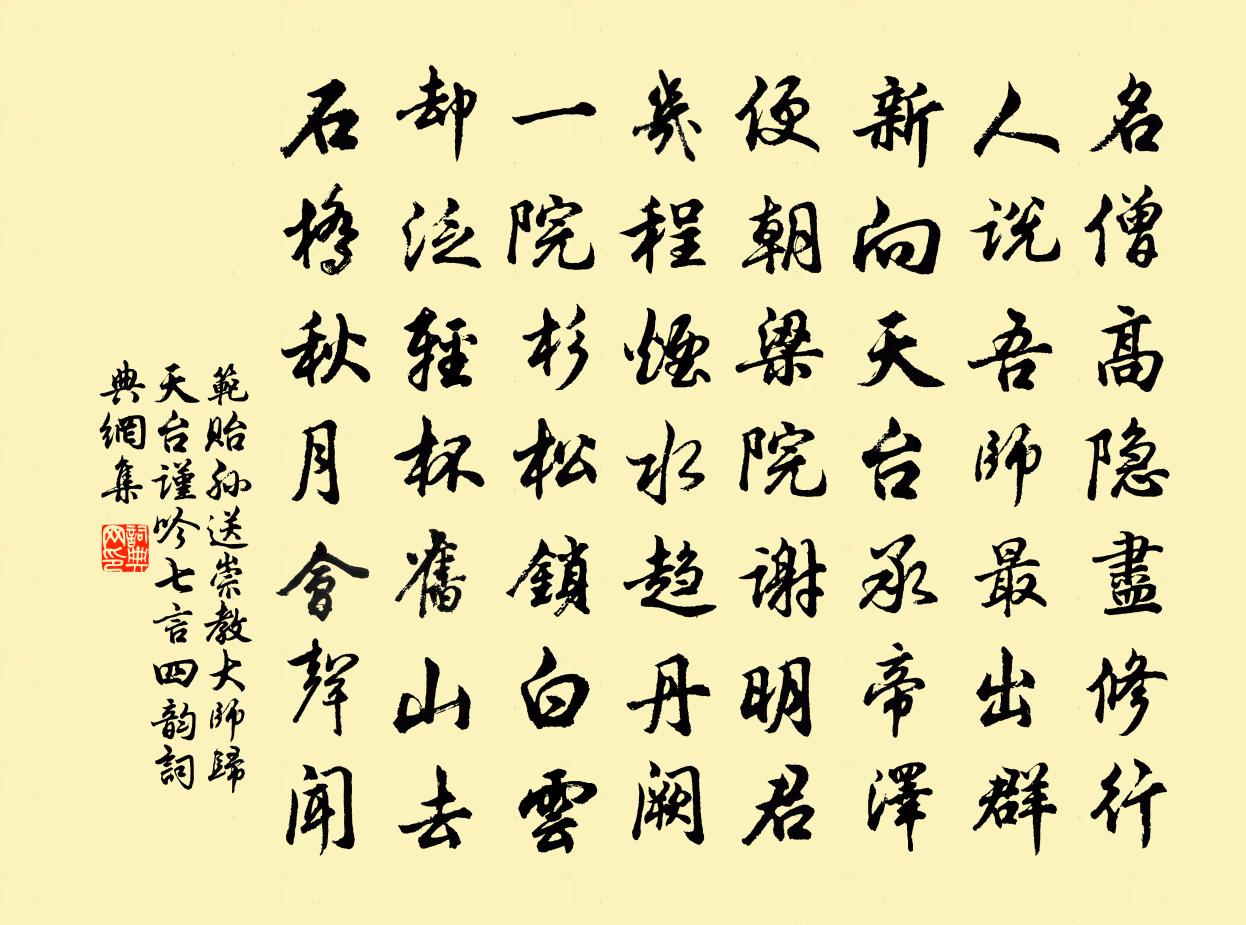 名僧高隐盡修行
人説吾師最出群
新向天台承帝澤
便朝梁院謝明君
幾程煙水趋丹闕
一院杉松鎖白雲
却泛輕杯舊山去
石橋秋月會聲聞
範貽孫送崇教大師歸
天台謹吟七言四韵詞
典網集
詞典网印